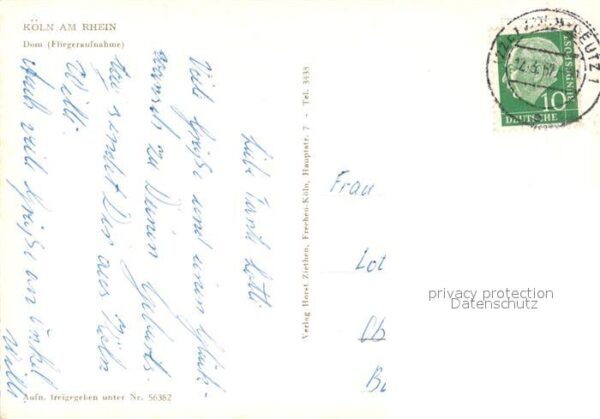 KÖLN AM RHEIN
Dom (Fliegeraufnahme)
Liebe Tante Lotti
Viele Grüße und einen Glück-
wunsch zu Deinem Geburts-
tag sendet Dir aus Köln
Willi.
Auch viele Grüße von Onkel
Willi
Aufn. freigegeben unter Nr. 56382
Verlag Horst Ziethen, Frechen-Köln, Hauptstr. 7 - Tel. 3438
DEUTZ 1
10
DEUTSCHE
BUNDESPOST
Frau
Lot
Ob
privacy protection
Datenschutz